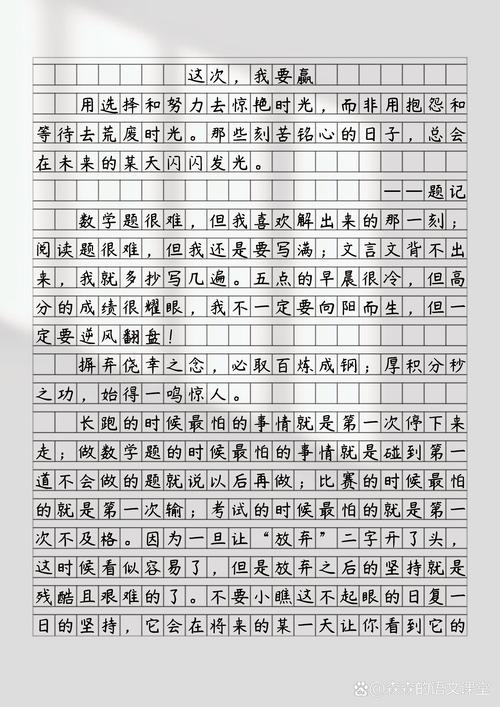 这次，我要赢
用选择和努力去惊艳时光，而非用抱怨和
等待去荒废时光。那些刻苦铭心的日子，总会
在未来的某天闪闪发光。
——题记
数学题很难，但我喜欢解出来的那一刻；
阅读题很难，但我还是要写满；文言文背不出
来，我就多抄写几遍。五点的早晨很冷，但高
分的成绩很耀眼，我不一定要向阳而生，但一
定要逆风翻盘！
摒弃侥幸之念，必取百炼成钢；厚积分秒
之功，始得一鸣惊人。
长跑的时候最怕的事情就是第一次停下来
走；做数学题的时候最怕的事情就是碰到第一
道不会做的题就说以后再做；比赛的时候最怕
的就是第一次输；考试的时候最怕的就是第一
次不及格。因为一旦让“放弃”二字开了头，
这时候看似容易了，但是放弃之后的坚持就是
残酷且艰难的了。不要小瞧这不起眼的日复一
日的坚持，它会在将来的某一天让你看到它的
@森森的语文课堂